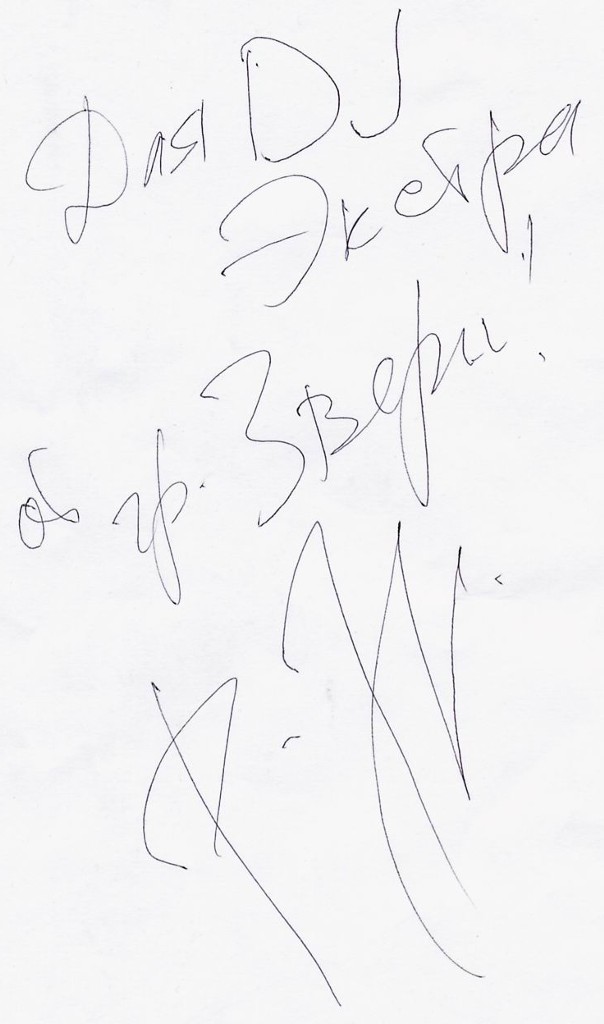 Для DJ
Экстра!
от гр. Звери!